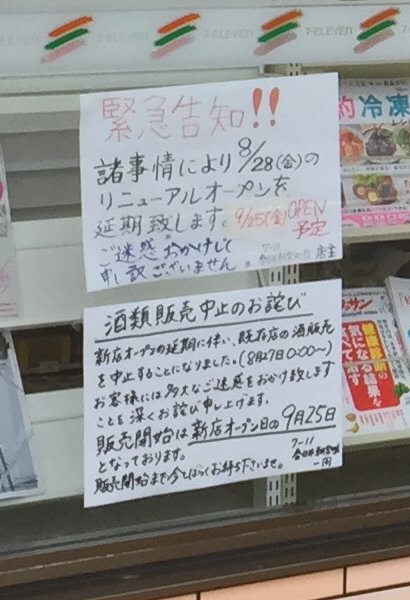 7-ELEVEN
7-ELEVEN
緊急告知!!
諸事情により8/28(金)の
リニューアルオープンを
延期致します。9/25(金)OPEN
予定
ご迷惑おかけして
申し訳ございません。
7-11
店主
酒類販売中止のお詫び
新店オープンの延期に伴い、既存店の酒販売
を中止することになりました。(8月27日0:00〜)
お客様には多大なご迷惑をおかけ致します
ことを深くお詫び申し上げます。
販売開始は新店オープン日の9月25日
となっております。
販売開始まで今しばらくお待ち下さいませ。
7-11
一同
冷凍
サン
健康診断の
結果を